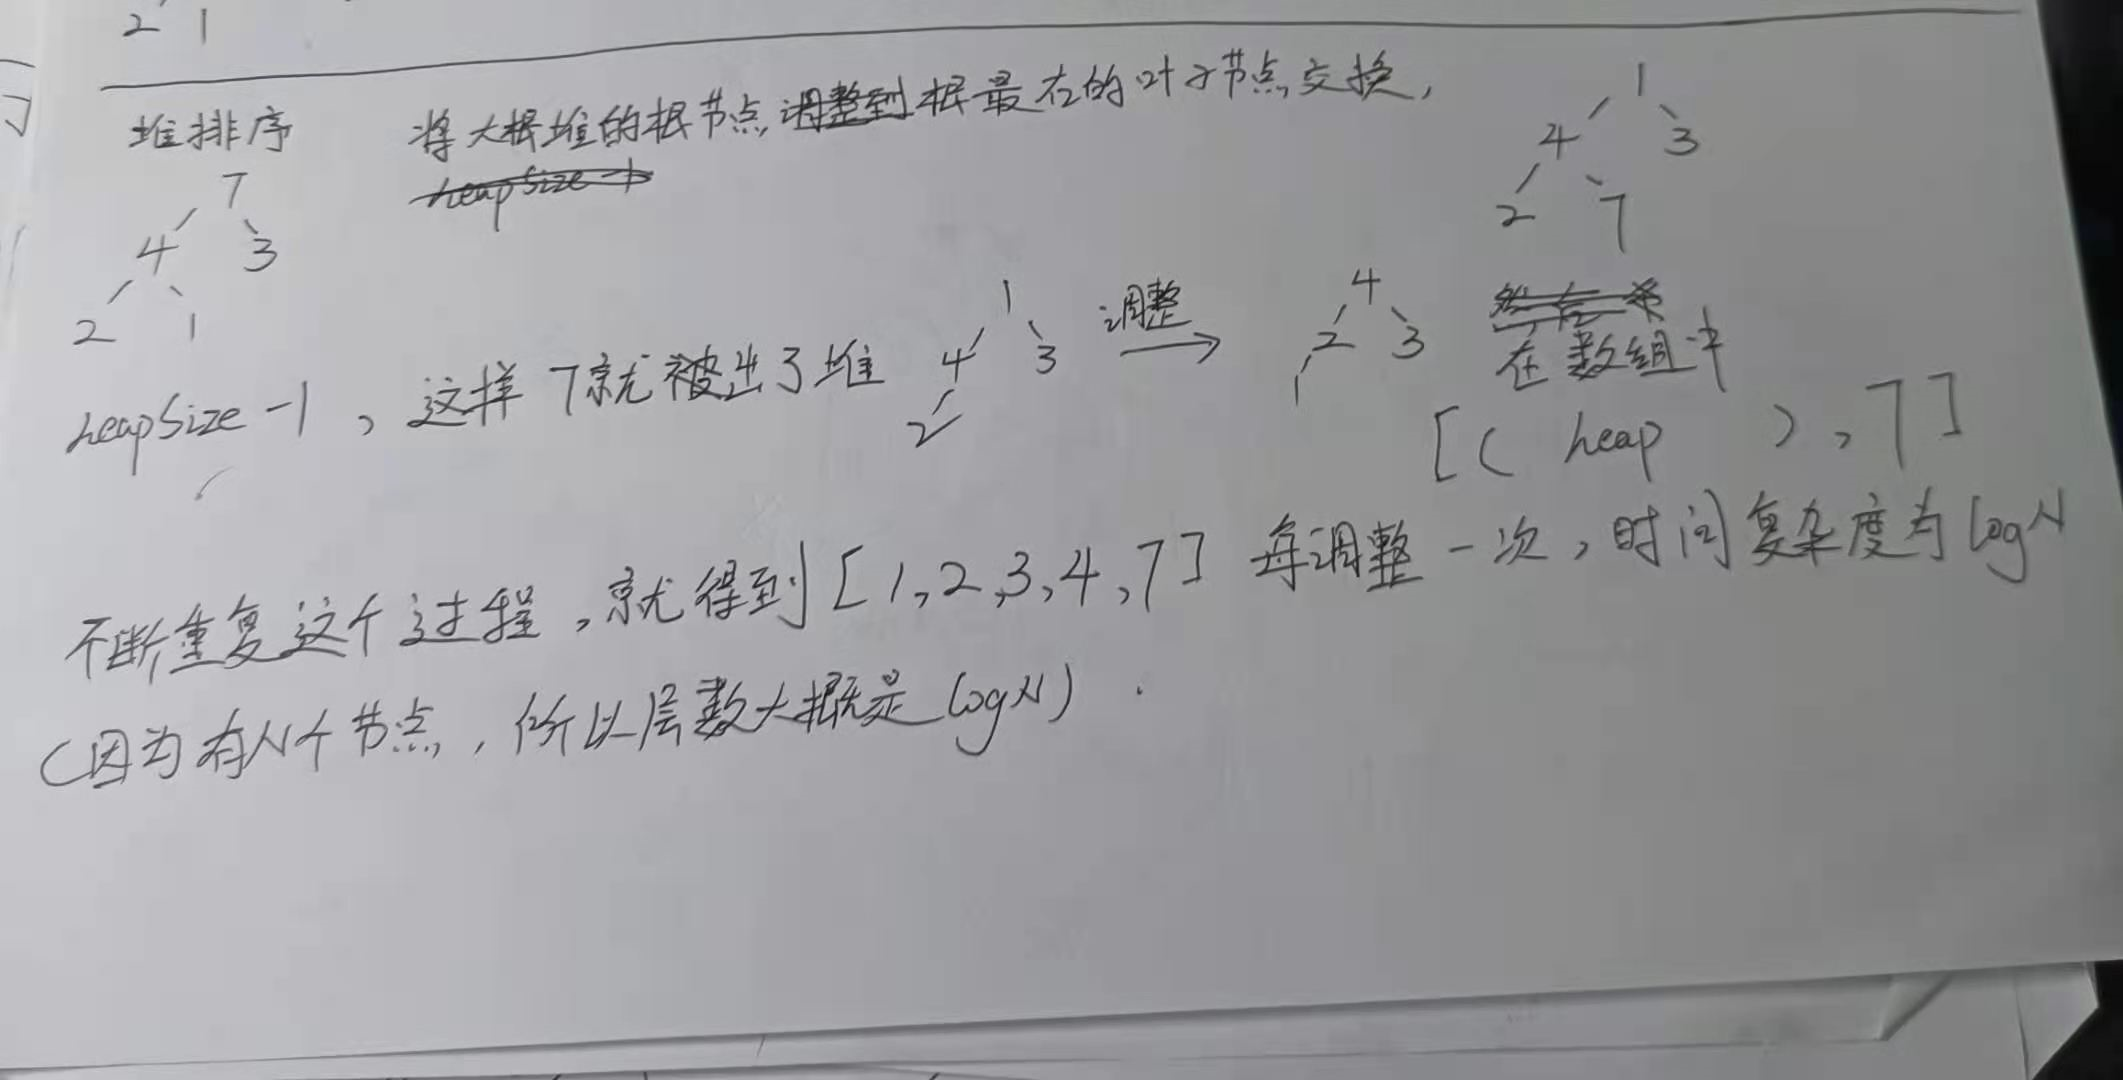 2 1
堆排序 将大根堆的根节点调整到根最右的叶子节点交换,
heapSize-1
7
4 3
2 1
1
4 3
2 7
heapSize-1, 这样7就被出了堆
1
4 3
2
调整
4
2 3
1
在数组中
[( heap ), 7]
不断重复这个过程,就得到[1,2,3,4,7] 每调整一次,时间复杂度为logN
(因为有N个节点,所以层数大概是logN).